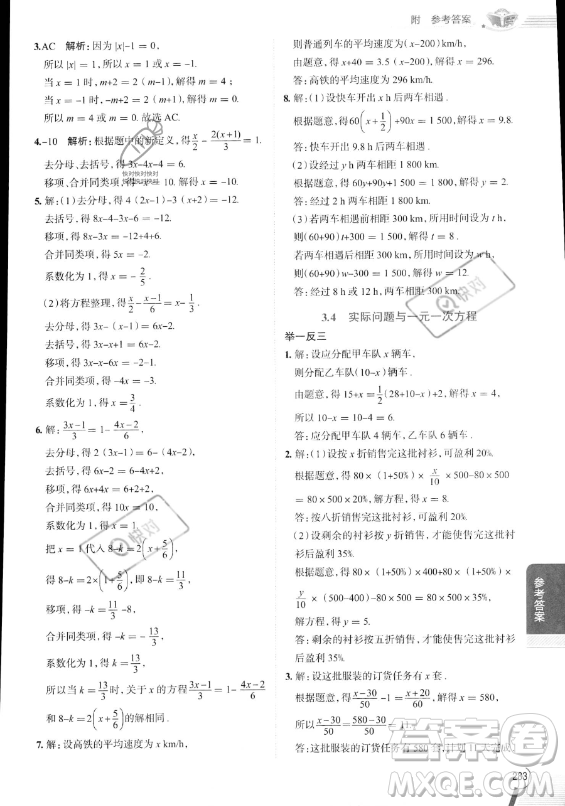 附 参考答案
3.AC 解析:因为|x|-1=0,
所以|x|=1,所以x=±1.
当x=1时,m+2=2,所以m=0;
当x=-1时,-m+2=2,
所以m=0.故选AC.
4.-10 解析:根据题中的新定义,得x/2-2(x+1)/3=1.
去分母、去括号,得3x-4x-4=6,
移项、合并同类项,得-x=10.
5.解:(1)去分母,得4(2x-1)-3(x+2)=-12,
去括号,得
移项,得8x-3x=-12+4+6.
合并同类项,得5x=-2,
系数化为1,得x=-2/5.
(2)将方程整理,得x/2-(x-1)/6=1-x.
去分母,得3x-(x-1)=6-6x,
去括号,得
移项,得
合并同类项,得
系数化为1,得x=3/4.
6.解:(3x-1)/3=1-(4x-2)/6,
去分母,得2(3x-1)=6-(4x-2),
去括号,得6x-2=6-4x+2,
移项,得6x+4x=6+2+2,
合并同类项,得10x=10,
系数化为1,得x=1.
把x=1代入8-k=2(x+5/6),
得8-k=2×(1+5/6),即8-k=11/3,
移项,得-k=11/3-8,
合并同类项,得-k=-13/3,
系数化为1,得k=13/3.
所以当k=13/3时,关于x的方程(3x-1)/3=1-(4x-2)/6
和8-k=2(x+5/6)的解相同.
7.解:设高铁的平均速度为x km/h,
则普通列车的平均速度为(x-200)km/h,
由题意,得x+40=3.5(x-200),解得x=296.
答:高铁的平均速度为296 km/h.
8.解:(1)设快车开出x h后两车相遇.
根据题意,得60(x+1/2)+90x=1 500,解得x=9.8.
答:快车开出9.8 h后两车相遇.
(2)设经过y h后两车相距1 800 km.
根据题意,得60y+90y+1 500=1 800,解得y=2.
答:经过2 h后两车相距1 800 km.
(3)若两车相遇前相距300 km,设所用时间为t h,
则(60+90)t+300=1 500,解得t=8;
若两车相遇后相距300 km,设所用时间为w h,
则(60+90)w-300=1 500,解得w=12.
答:经过8 h或12 h后两车相距300 km.
3.4 实际问题与一元一次方程
举一反三
1.解:设应分配甲车队x辆车,
则分配乙车队(10-x)辆车.
由题意,得15+x=1/2(28+10-x),解得x=4,
所以10-x=10-4=6.
答:应分配甲车队4辆车,乙车队6辆车.
2.解:(1)设按x折销售完这批衬衫,可盈利20%.
根据题意,得80×(1+50%)×x/10×500-80×500
=80×500×20%,解得x=8.
答:按八折销售完这批衬衫,可盈利20%.
(2)设剩余的衬衫按y折销售,才能使售完这批衬
衫后盈利35%.
根据题意,得80×(1+50%)×400+80×(1+50%)×
y/10×(500-400)-80×500=80×500×35%,
解得y=5.
答:剩余的衬衫按五折销售,才能使售完这批衬衫
后盈利35%.
3.解:设这批服装的订货任务有x套.
根据题意,得(x-30)/50-1=(x+20)/60,解得x=580,
所以(x-30)/50=(580-30)/50=11.
答:这批服装的订货任务有580套,
参考答案
快对